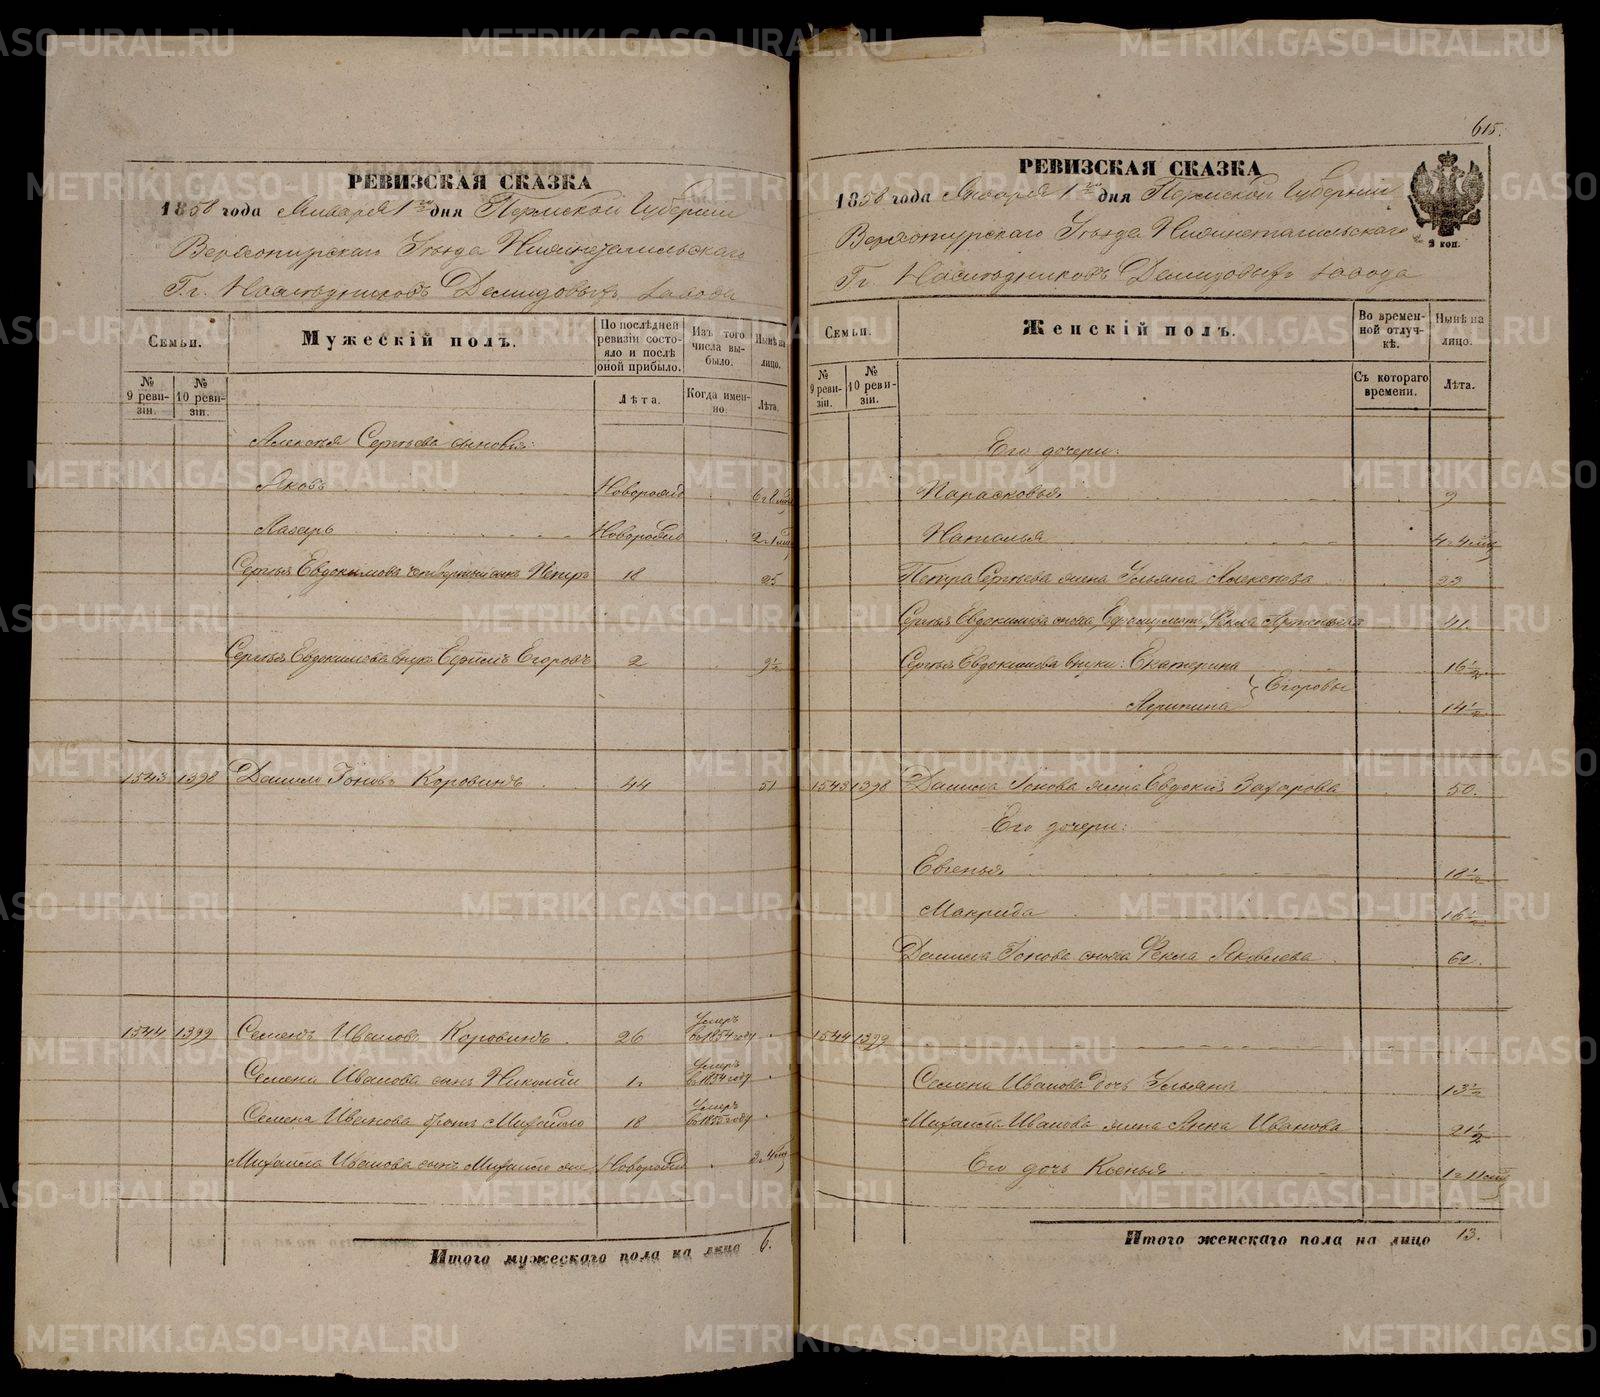 РЕВИЗСКАЯ СКАЗКА
1858 года Января 1 дня Пермской Губернии
Верхотурскаго Уезда Нижнетагильскаго
Гг. Наследниковъ Демидовыхъ завода
Семьи.
Мужескій полъ.
По последней ревизіи состояло и после оной прибыло.
Изъ того числа выбыло.
Ныне на лицо.
№ 9 ревизіи.
№ 10 ревизіи.
Лета.
Когда именно.
Лета.
Алексея Сергеева сыновья:
Яковъ Новорожд 6 г 8 мес
Лазарь Новорожд 2 г 1 мес
Сергея Евдокимова четвертый сынъ Петръ 18 25
Сергея Евдокимова внукъ Ефимъ Егоровъ 2 9½
1543 1398 Данило Іоновъ Коровинъ 44 51
1544 1399 Семенъ Ивановъ Коровинъ 26 Умеръ в 1854 году
Семена Иванова сынъ Николай 1 г Умеръ в 1854 году
Семена Иванова братъ Михайло 18 Умеръ в 1855 году
Михаила Иванова сынъ Михайло Новорожд 3 г 4 мес
Итого мужескаго пола на лицо 6.
615.
РЕВИЗСКАЯ СКАЗКА
2 коп.
1858 года Января 1 дня Пермской Губернии
Верхотурскаго Уезда Нижнетагильскаго
Гг Наследниковъ Демидовыхъ завода
Семьи.
Женскій полъ.
Во временной отлучке.
Ныне на лицо.
№ 9 ревизіи.
№ 10 ревизіи.
Съ котораго времени.
Лета.
Его дочери:
Парасковья 9
Наталья 4 г 4 мес
Петра Сергеева жена Ульяна Алексеева 23
Сергея Евдокимова сноха, Ефиму мать, Фекла Артемьева 41.
Сергея Евдокимова внуки: Екатерина 16½
Егоровы
Агрипина 14½
1543 1398 Данила Іонова жена Евдокия Захарова 50.
Его дочери:
Евгенья 18½
Макрида 16½
Данила Іонова сноха Фекла Яковлева
1544 1399
Семена Иванова дочь Ульяна 13½
Михаила Иванова жена Анна Иванова 21½
Его дочь Ксенья 1 г 11 мес
Итого женскаго пола на лицо 13.
METRIKI.GASO-URAL.RU